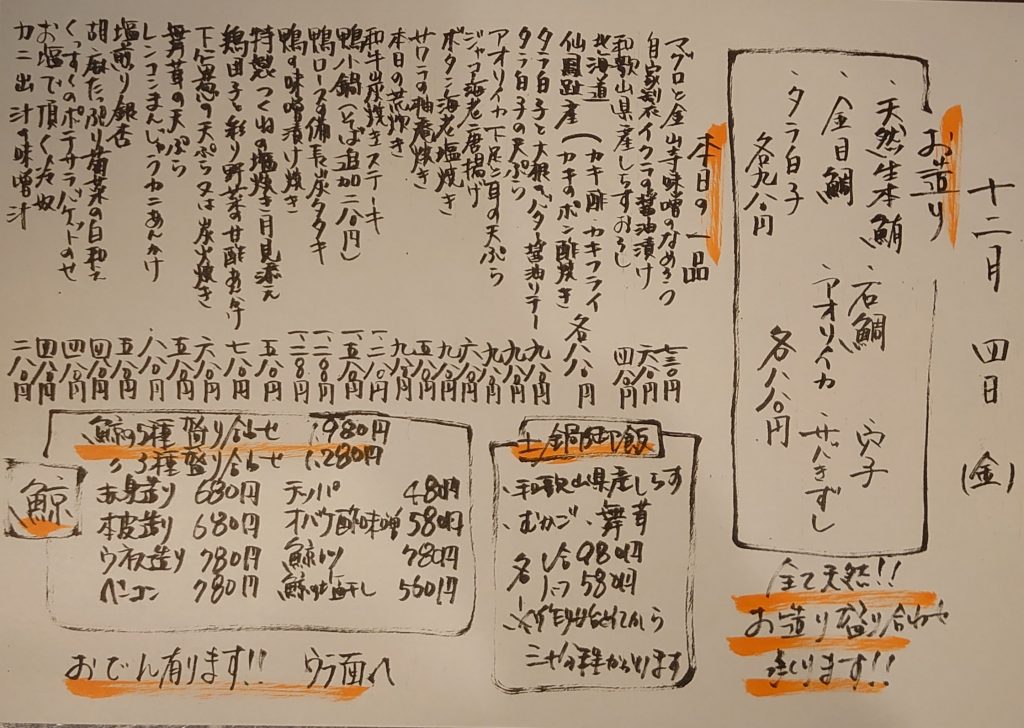 十二月 四日 (金)
お造り
・天然生本鮪 ・石鯛 ・穴子
・金目鯛 ・アオリイカ ・サバきずし
・タラ白子
各九八〇円 各八八〇円
全て天然!!
お造り盛り合わせ
承ります!!
本日の一品
マグロと金山寺味噌のなめろう 七三〇円
自家製イクラの醤油漬け 六八〇円
和歌山県産しらすおろし 四八〇円
北海道 (カキ酢 カキフライ
仙鳳趾産 (カキのポン酢焼き 各八八〇円
タラ白子と大根のバター醤油ソテー 九八〇円
タラ白子の天ぷら 九八〇円
アオリイカ下足と耳の天ぷら 九八〇円
ジャコ海老唐揚げ 六八〇円
ボタン海老塩焼き 九八〇円
サワラの柚庵焼き 五八〇円
本日の荒炊き 九八〇円
和牛炭焼きステーキ 一、二八〇円
鴨小鍋(そば追加二八〇円) 一、五八〇円
鴨ロースの備長炭タタキ 一、二八〇円
鴨の味噌漬け焼き 一、二八〇円
特製つくねの塩焼き 月見添え 五八〇円
鶏団子と彩り野菜の甘酢あんかけ 七八〇円
下仁田葱の天ぷら又は炭火焼き 六八〇円
舞茸の天ぷら 五八〇円
レンコンまんじゅうカニあんかけ 八八〇円
塩煎り銀杏 五八〇円
胡麻たっぷり菊菜の白和え 四八〇円
くんすくのポテサラバゲットのせ 四八〇円
お塩で頂く冷奴 四八〇円
カニ出汁の味噌汁 二八〇円
土鍋御飯
・和歌山県産しらす
・むかご ・舞茸
各 一合 980円
ハーフ 580円
※ご注文頂いてから
三十分程かかります
鯨
鯨の5種盛り合せ 1,980円
〃 3種盛り合せ 1,280円
赤身造り 680円 テッパ 480円
本皮造り 680円 オバケ酢味噌 580円
ウネ造り 780円 鯨カツ 780円
ベーコン 780円 鯨の塩干し 560円
おでん有ります!! ウラ面へ